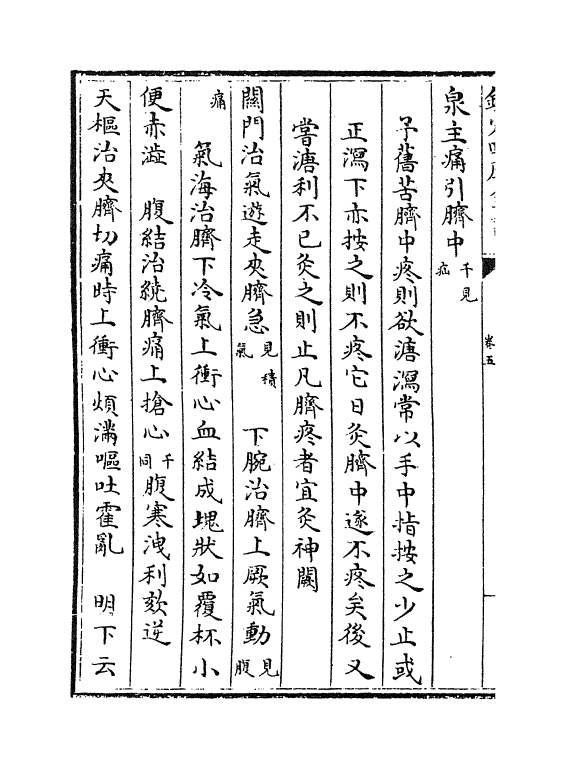 卷五
泉主痛引臍中千見疝
予舊苦臍中疼則欲溏瀉常以手中指按之少止或
正瀉下亦按之則不疼它日灸臍中遂不疼矣後又
嘗溏利不已灸之則止凡臍疼者宜灸神闕
關門治氣遊走夾臍急見積氣　下腕治臍上厥氣動見腹
痛　氣海治臍下冷氣上衝心血結成塊狀如覆杯小
便赤澁　腹結治繞臍痛上搶心千同腹寒洩利欬逆
天樞治夾臍切痛時上衝心煩滿嘔吐霍亂　明下云